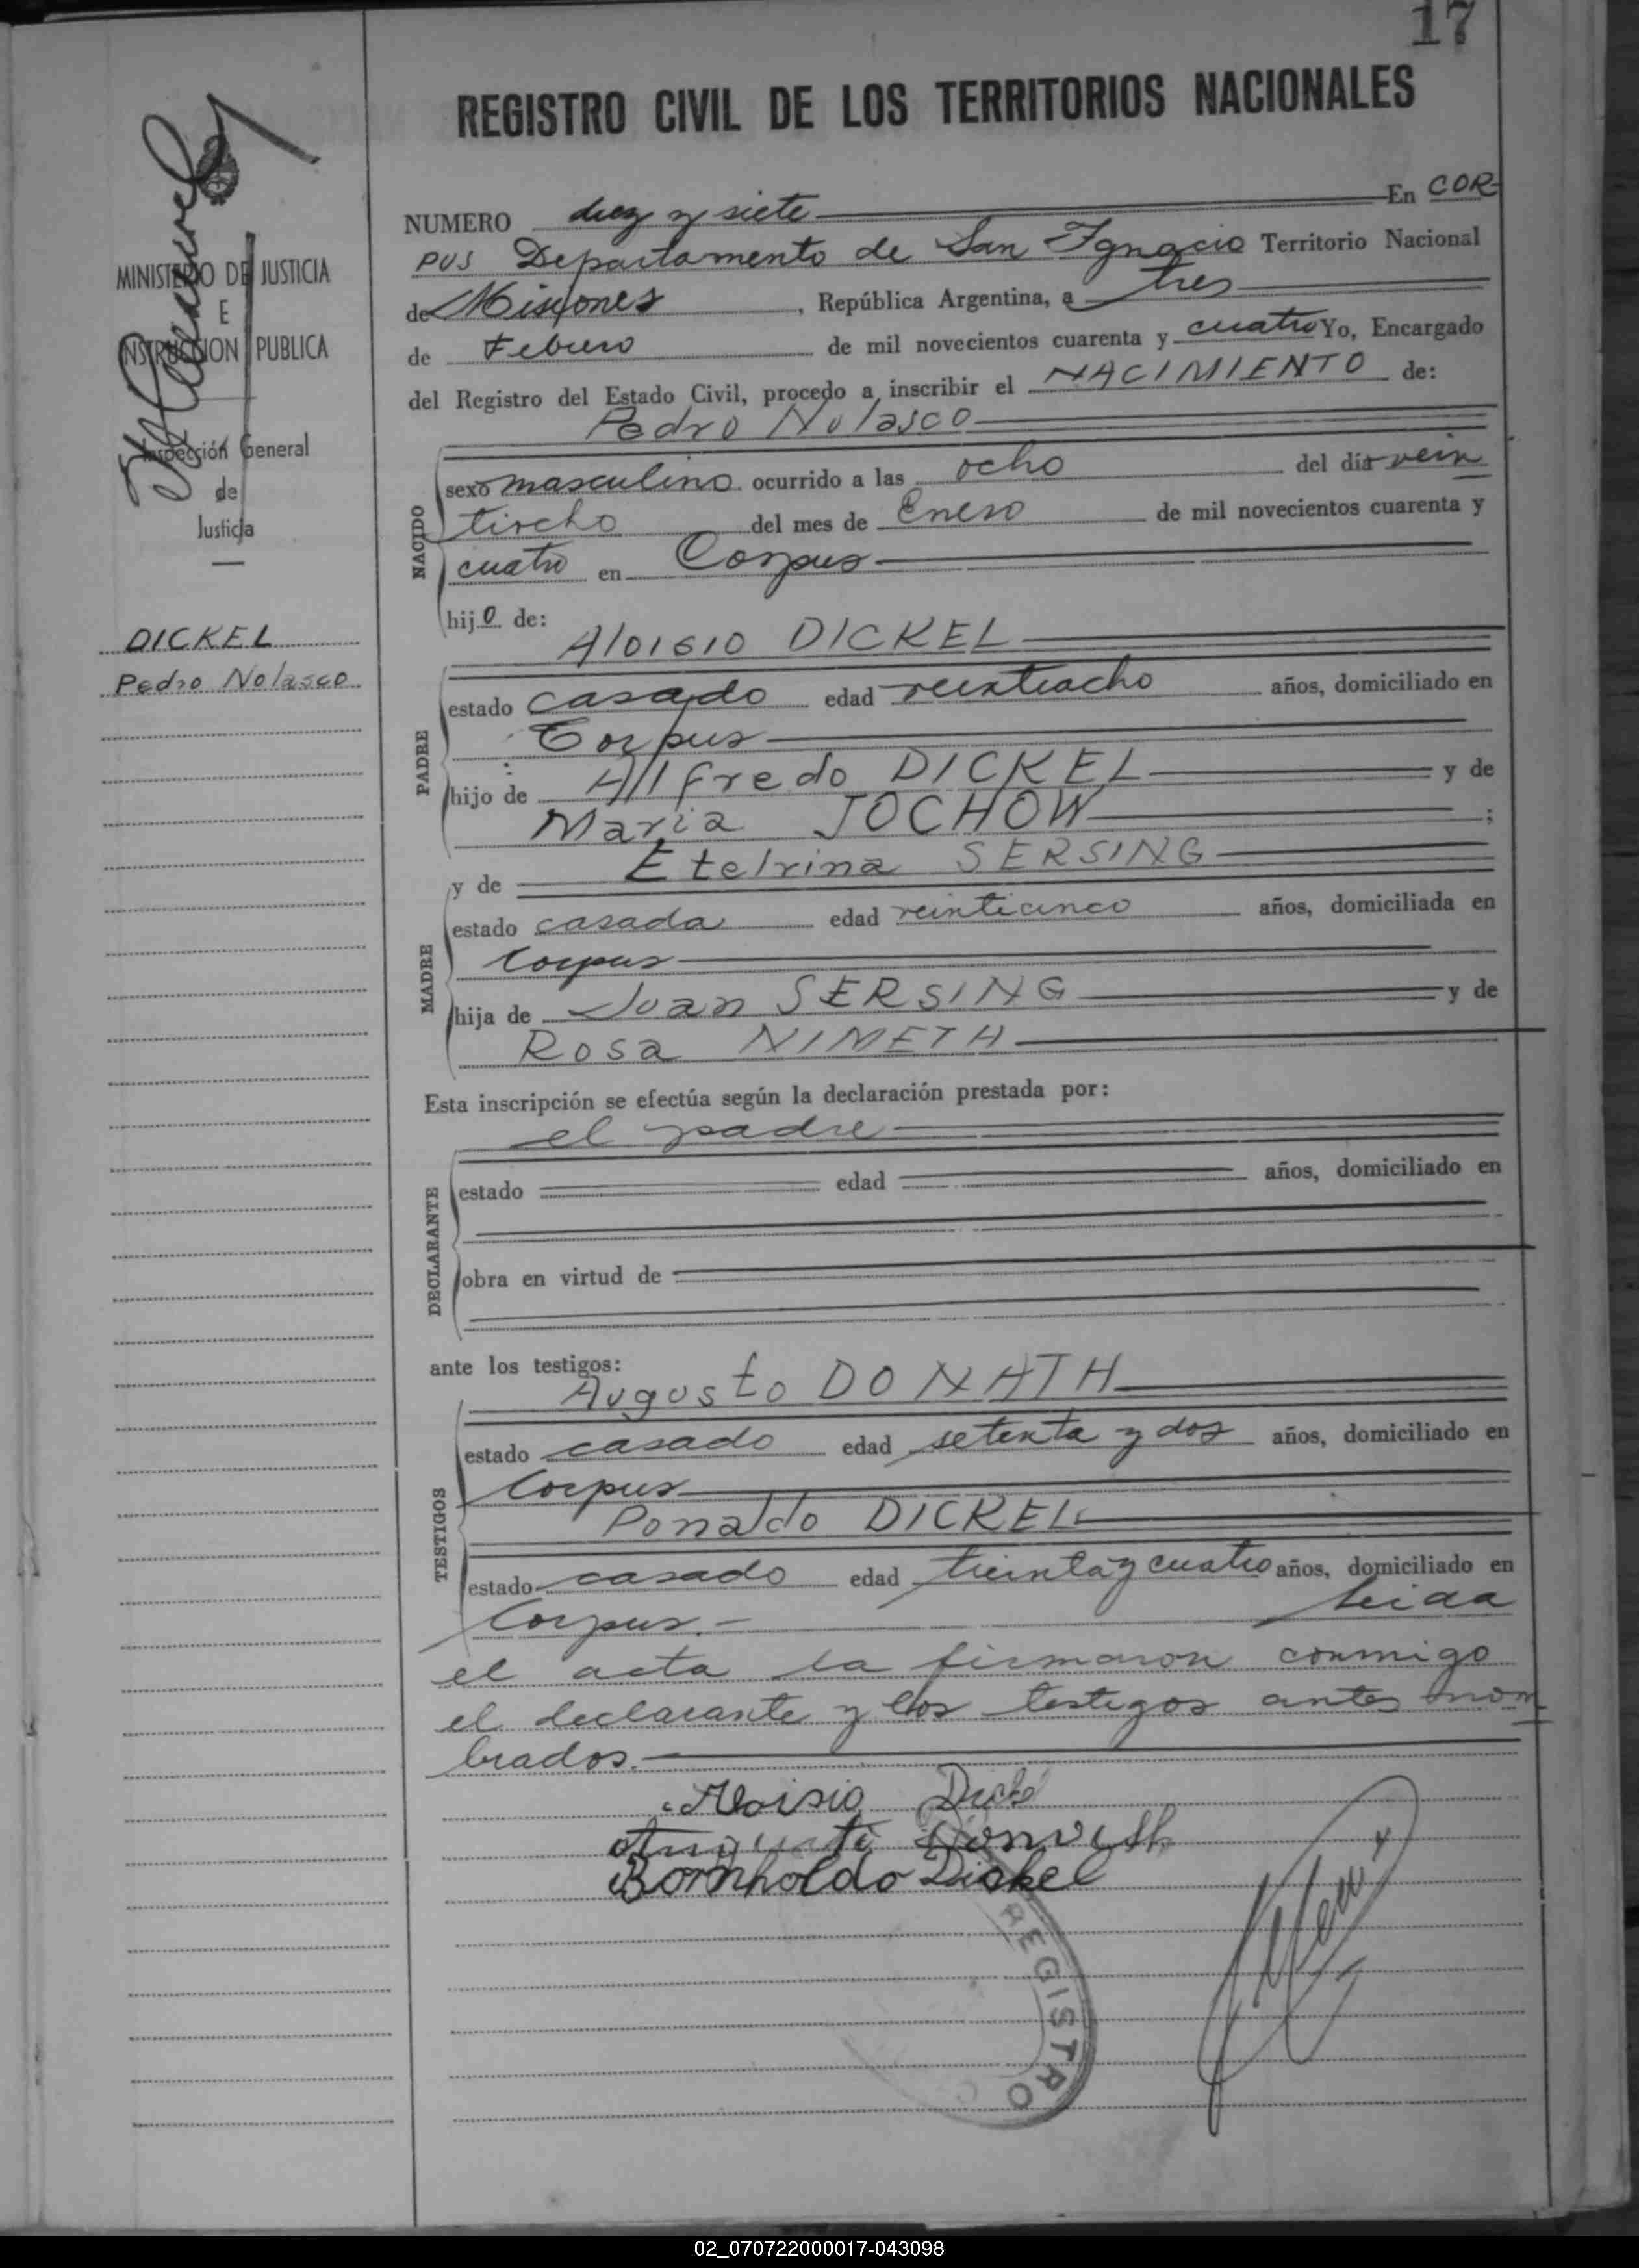 17
REGISTRO CIVIL DE LOS TERRITORIOS NACIONALES
MINISTERIO DE JUSTICIA
E
INSTRUCCION PUBLICA
Inspección General
de
Justicia
DICKEL
Pedro Nolasco
NUMERO diez y siete En COR-
PUS Departamento de San Ignacio Territorio Nacional
de Misiones, República Argentina, a tres
de Febrero de mil novecientos cuarenta y cuatro Yo, Encargado
del Registro del Estado Civil, procedo a inscribir el NACIMIENTO de:
Pedro Nolasco
NACIDO
sexo masculino ocurrido a las ocho del día vein
tiocho del mes de Enero de mil novecientos cuarenta y
cuatro en Corpus
hijo de:
Aloisio DICKEL
PADRE
estado casado edad veintiocho años, domiciliado en
Corpus
hijo de Alfredo DICKEL y de
Maria JOCHOW ;
y de Etelvina SERSING
MADRE
estado casada edad veinticinco años, domiciliada en
Corpus
hija de Juan SERSING y de
Rosa NIMETH
Esta inscripción se efectúa según la declaración prestada por:
el padre
DECLARANTE
estado edad años, domiciliado en
obra en virtud de
ante los testigos:
Augusto DONATH
TESTIGOS
estado casado edad setenta y dos años, domiciliado en
Corpus
Ponaldo DICKEL
estado casado edad treinta y cuatro años, domiciliado en
Corpus.- Leida
el acta la firmaron conmigo
el declarante y los testigos antes nom
brados.
Aloisio Dickel
Bornholdo Dickel
REGISTRO C
02_070722000017-043098